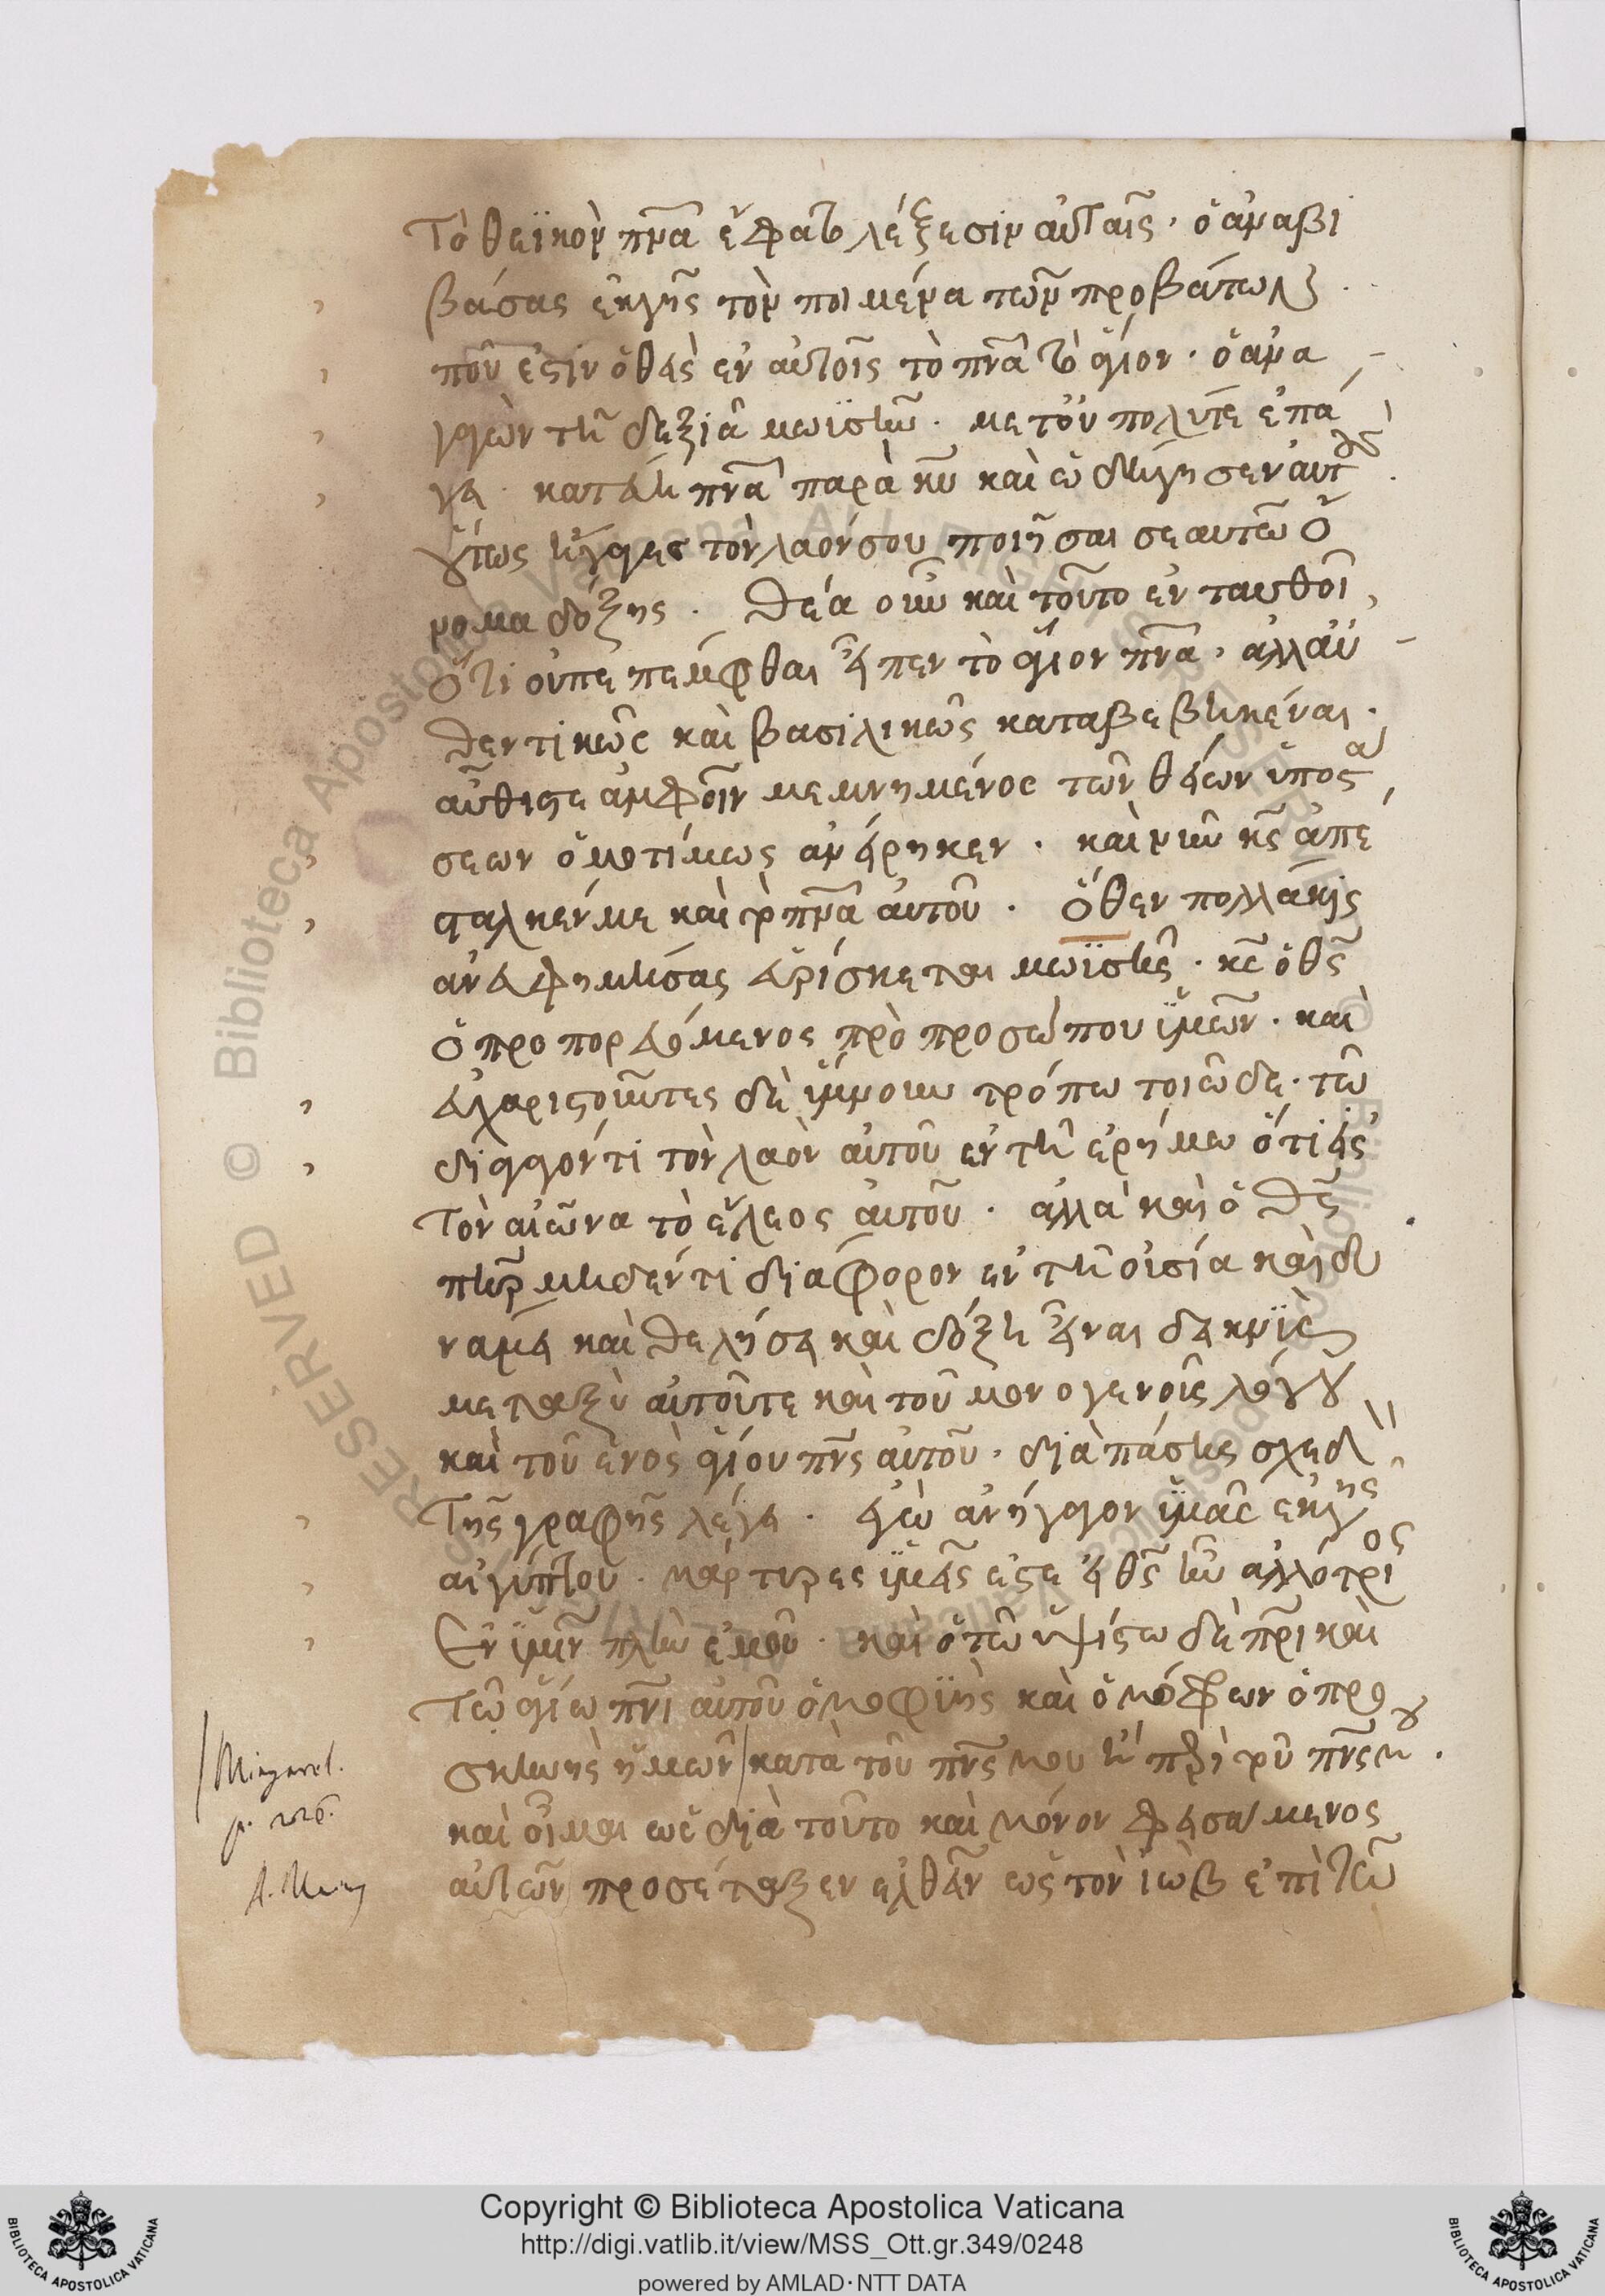 Τὸ θεϊκὸν πνα ἔφατο λέξεσιν αὐταῖς · ὁ ἀναβι
βάσας ἐκ γῆς τὸν ποιμένα τῶν προβάτων
ποῦ ἐστιν ὁ θεὶς ἐν αὐτοῖς τὸ πνα τὸ ἅγιον · ὁ ἀνα
γαγὼν τῆ δεξιᾶ μωϊσῆν · μετ οὐ πολύ τε ἐπά
γει · κατέβη πνα παρὰ κυ καὶ ὡδήγησεν αὐτούς ·
οὕτως ἤγαγες τὸν λαόν σου ποιῆσαι σεαυτῶ ὄ
νομα δόξης · θέα οὖν καὶ τοῦτο ἐνταυθοῖ,
ὅτι οὐ πεπέμφθαι εἶπεν τὸ ἅγιον πνα · ἀλλ αὐ
θεντικῶς καὶ βασιλικῶς καταβεβηκέναι ·
αὖθίς τε ἀμφοῖν μεμνημένος τῶν θείων ὑποστά
σεων ὁμοτίμως ἀνείρηκεν · καὶ νῦν κς ἀπέ
σταλκέν με καὶ τὸ πνα αὐτοῦ · ὅθεν πολλάκις
ἀνευφημήσας εὑρίσκεται μωϊσῆς · κς ὁ θς
ὁ προπορευόμενος πρὸ προσώπου ὑμῶν · καὶ
εὐχαριστοῦντες δὲ ὕμνουν τρόπω τοιῶδε · τῶ
διαγαγόντι τὸν λαὸν αὐτοῦ ἐν τῆ ἐρήμω ὅτι εἰς
τὸν αἰῶνα τὸ ἔλεος αὐτοῦ · ἀλλὰ καὶ ὁ θς
πηρ μηδέν τι διάφορον ἐν τῆ οὐσία καὶ δυ
νάμει καὶ θελήσει καὶ δόξη εἶναι δεικνὺς
μεταξὺ αὐτοῦ τε καὶ τοῦ μονογενοῦς λόγου
καὶ τοῦ ἑνὸς ἁγίου πνς αὐτοῦ · διὰ πάσης σχεδὸν
τῆς γραφῆς λέγει · ἐγὼ ἀνήγαγον ὑμᾶς ἐκ γῆς
αἰγύπτου · μάρτυρες ὑμεῖς ἐστε εἰ θς ἦν ἀλλότριος
ἐν ὑμῖν πλὴν ἐμοῦ · καὶ ὁ τῶ ὑψίστω δὲ πρι καὶ
τῶ ἁγίω πνι αὐτοῦ ὁμοφυὴς καὶ ὁμόφρων ὁ προ
σκηνὴς ἡμῶν κατὰ τοῦ πνς μου ἢ περὶ τοῦ πνς μου ·
καὶ οἶμαι ὡς διὰ τοῦτο καὶ μόνον φεισάμενος
αὐτῶν προσέταξεν ἐλθεῖν ὡς τὸν ἰὼβ ἐπὶ τῶ
Mingarel.
Copyright © Biblioteca Apostolica Vaticana
http://digi.vatlib.it/view/MSS_Ott.gr.349/0248
powered by AMLAD·NTT DATA
BIBLIOTECA APOSTOLICA VATICANA
BIBLIOTECA APOSTOLICA VATICANA